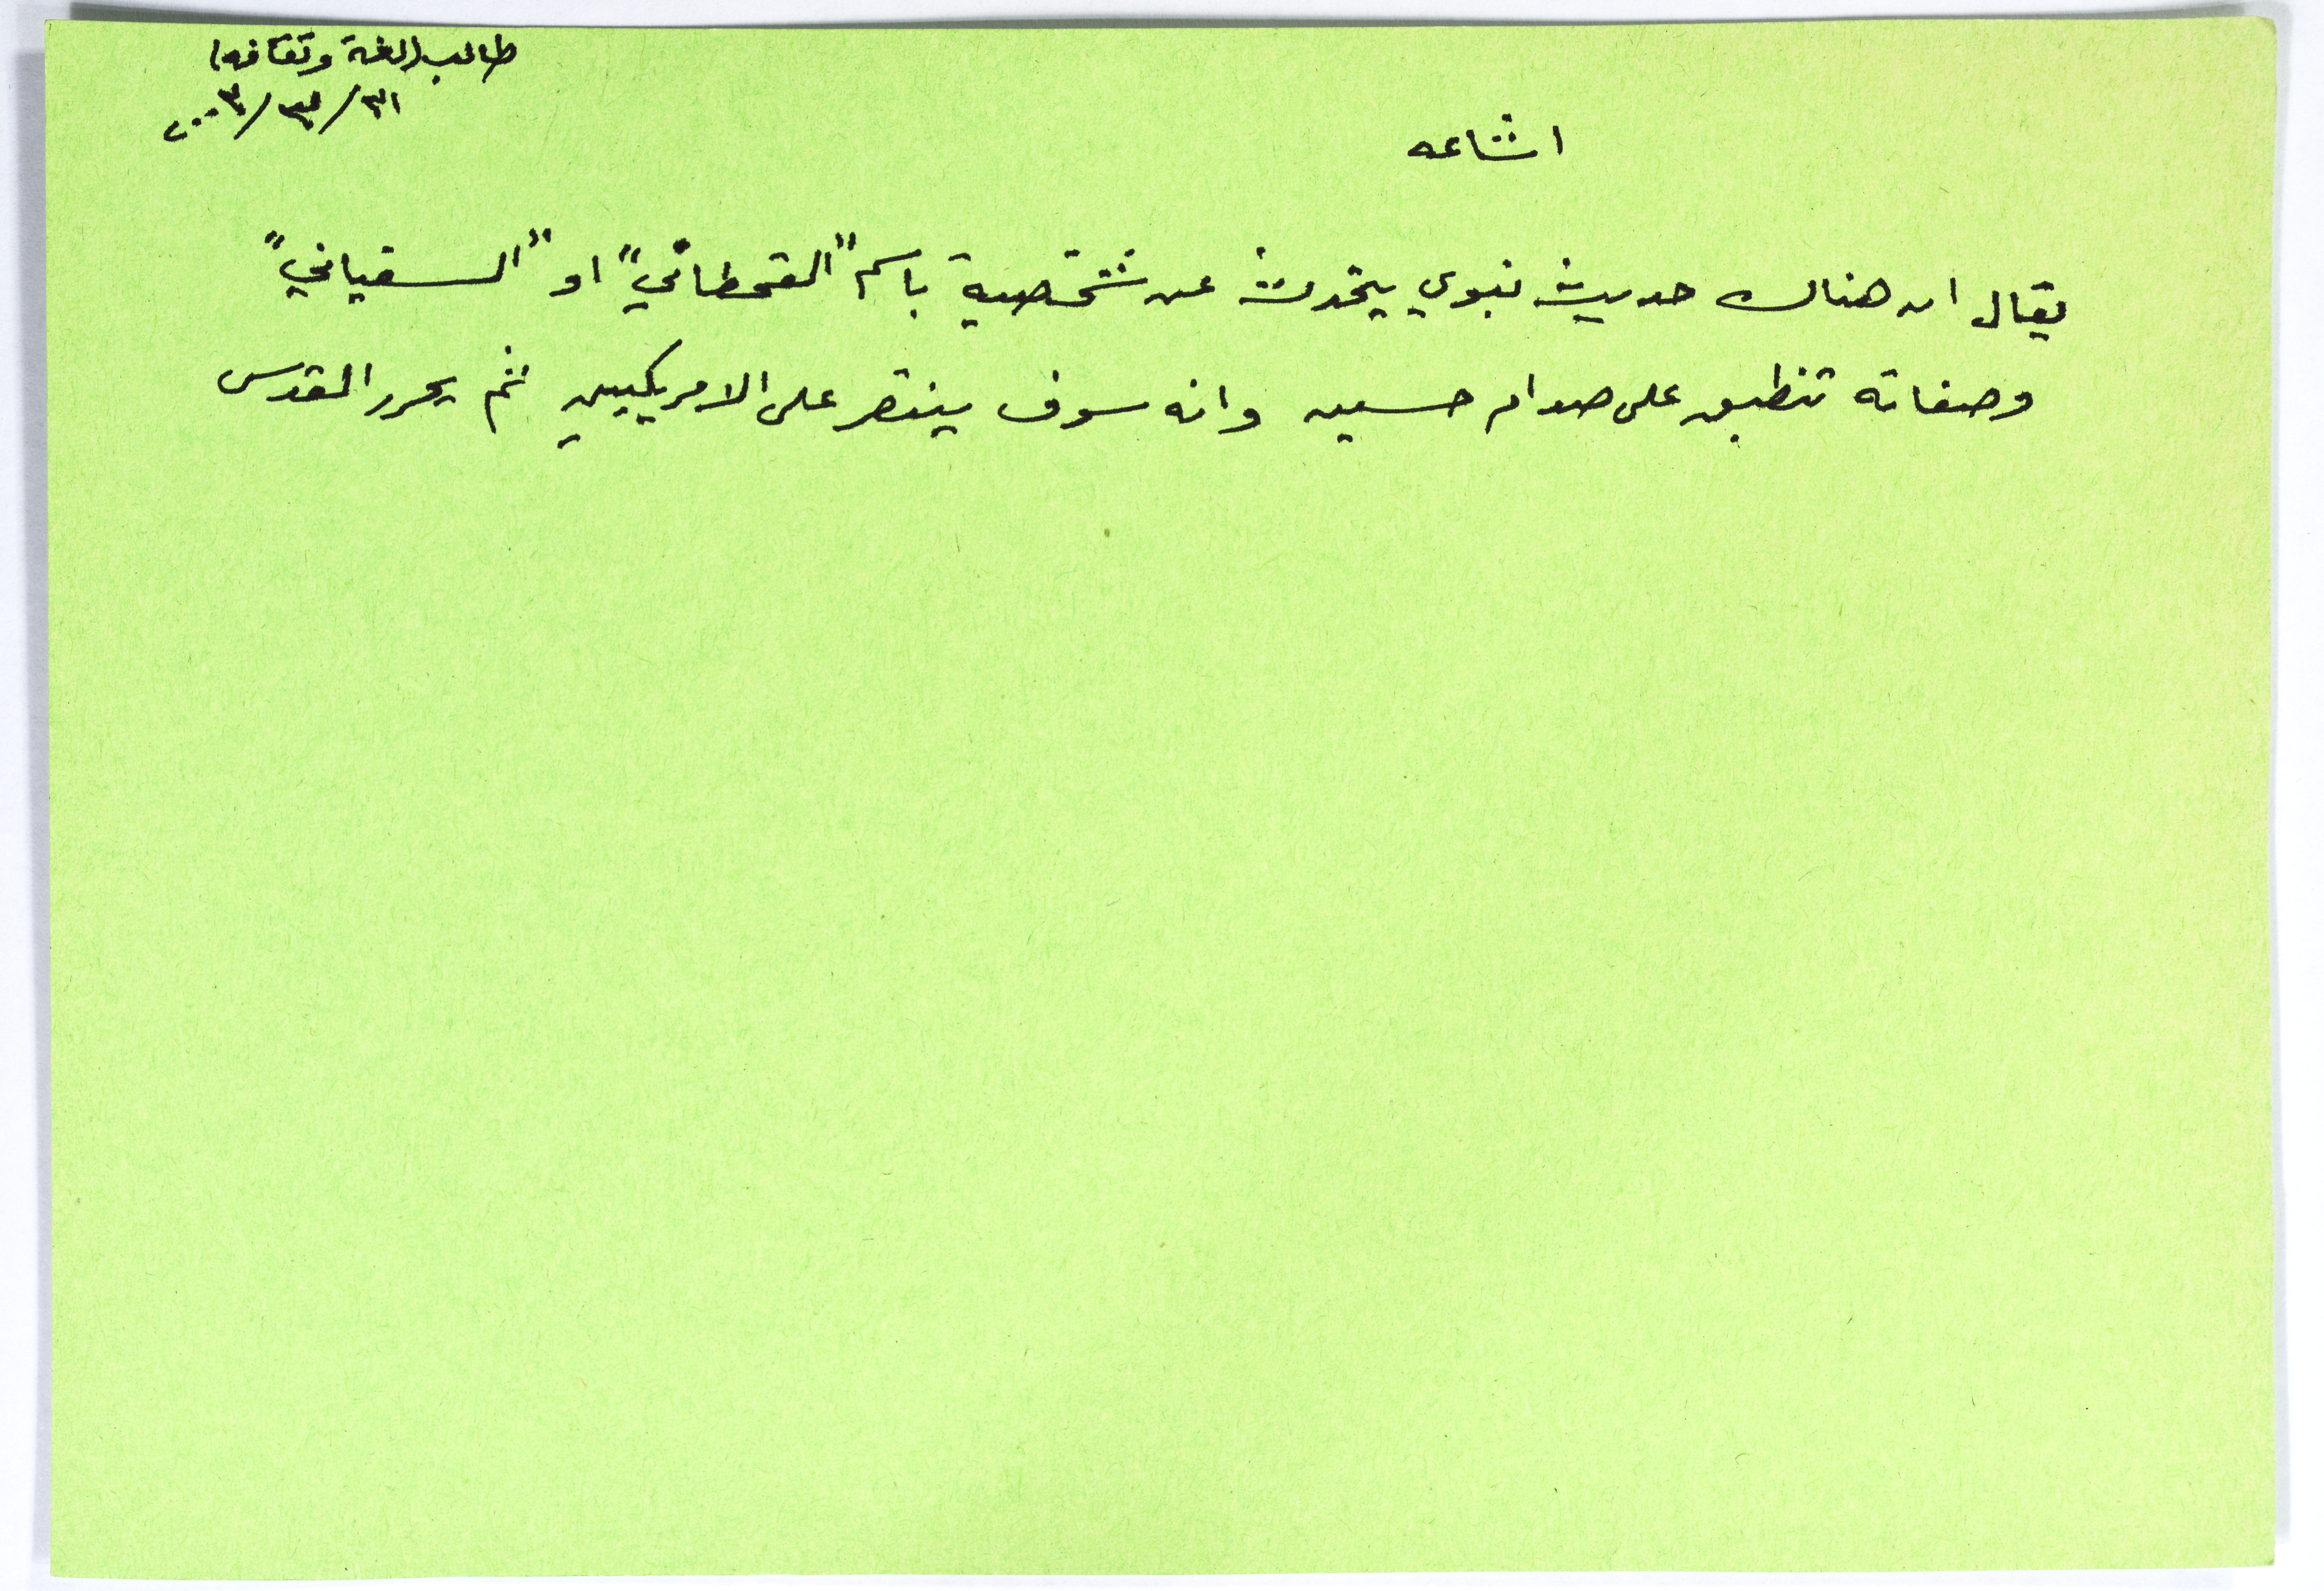 طالب (لغة وثقافه)
٣١/٣/٢٠٠٣
اشاعه
يقال ان هناك حديث نبوي يتحدث عن شخصية باسم "القحطاني" او "السفياني"
وصفاته تنطبق على صدام حسين وانه سوف ينتصر على الامريكيين ثم يحرر القدس